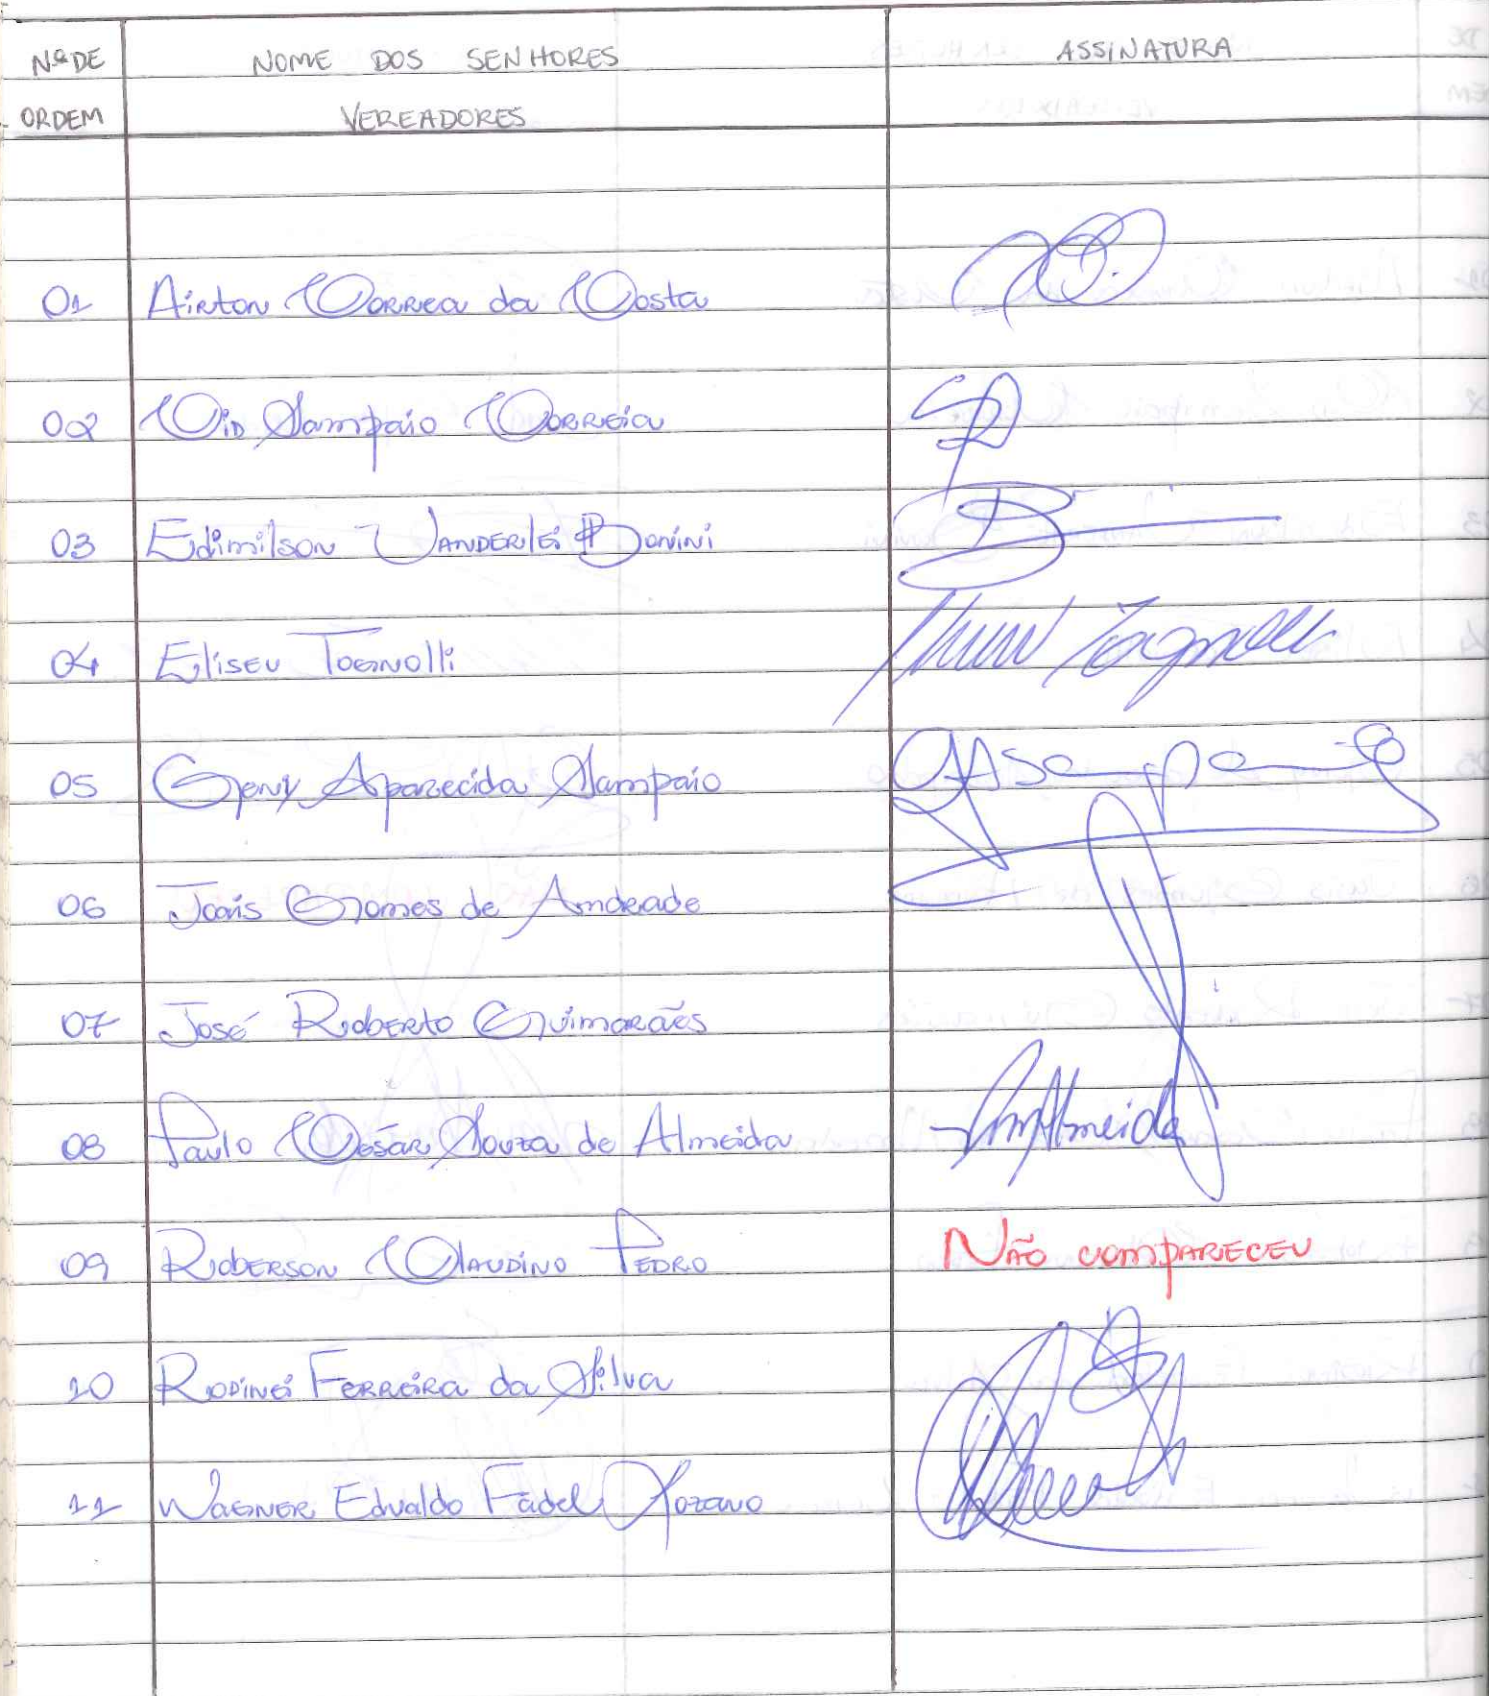 Nº DE NOME DOS SENHORES ASSINATURA
ORDEM VEREADORES
01 Airton Correa da Costa
02 Cid Sampaio Correia
03 Edimilson Vanderlei Bonini
04 Eliseu Tognolli
05 Geny Aparecida Sampaio GASampaio
06 Joais Gomes de Andrade
07 José Roberto Guimarães
08 Paulo César Souza de Almeida Almeida
09 Roberson Claudino Pedro Não compareceu
10 Rodinei Ferreira da Silva
11 Wagner Edvaldo Fadel Lozano